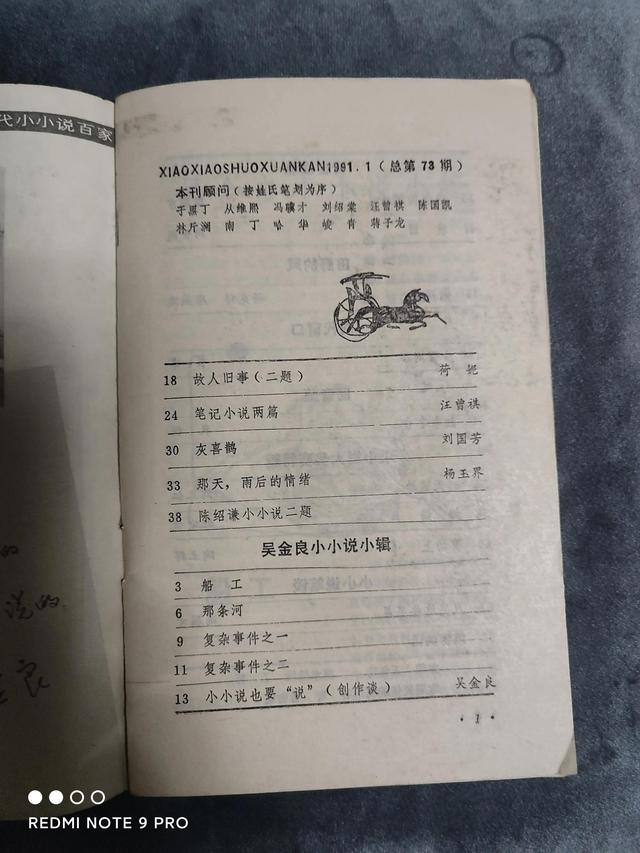 代小小说百家
的
说的
良
XIAOXIAOSHUOXUANKAN1991.1(总第73期)
本刊顾问(按姓氏笔划为序)
于黑丁 从维熙 冯骥才 刘绍棠 汪曾祺 陈国凯
林斤澜 南丁 哈华 峻青 蒋子龙
18 故人旧事(二题) 荷妮
24 笔记小说两篇 汪曾祺
30 灰喜鹊 刘国芳
33 那天,雨后的情绪 杨玉界
38 陈绍谦小小说二题
吴金良小小说小辑
3 船工
6 那条河
9 复杂事件之一
11 复杂事件之二
13 小小说也要“说”(创作谈) 吴金良
·1·
REDMI NOTE 9 PRO